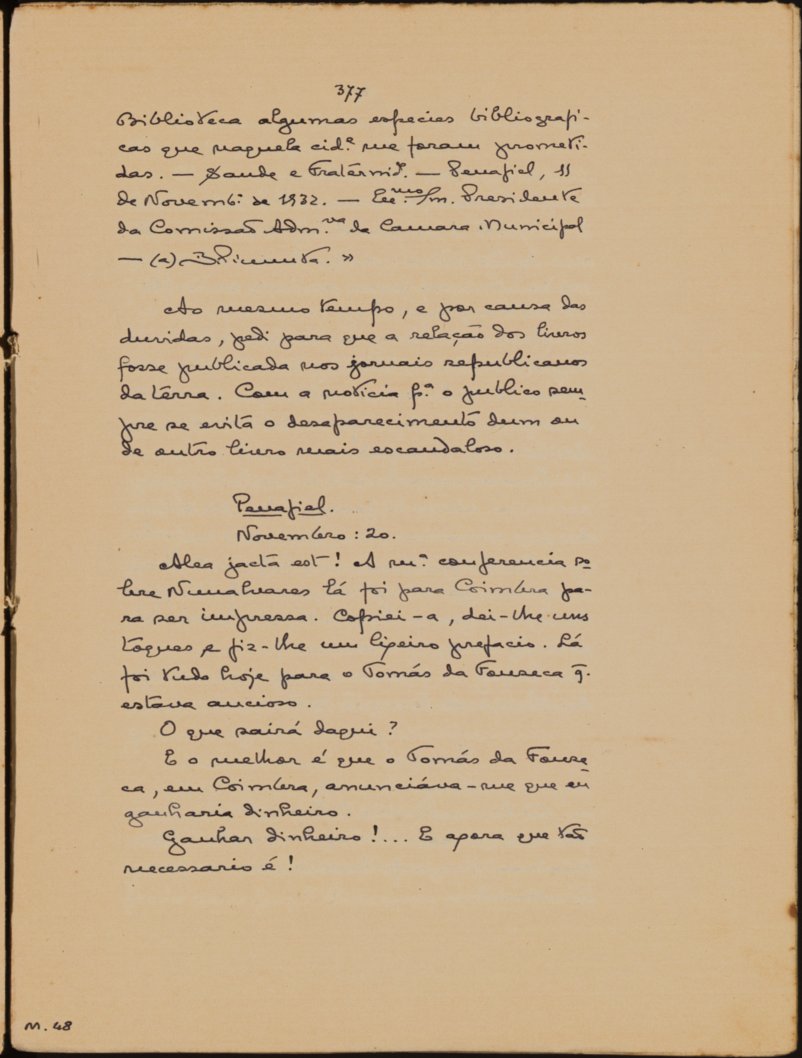 377
Biblioteca algumas especies bibliografi-
cas que naquela cid.e me foram prometi-
das. — Saude e Fraternid.e. — Penafiel, 11
de Novemb.o de 1932. — Ex.mo Snr. Presidente
da Comissaõ Adm.va da Camara Municipal
— (a) B Pimenta. »
Ao mesmo tempo, e por causa das
duvidas, pedi para que a relação dos livros
fosse publicada nos jornais republicanos
da terra. Com a noticia p.a o publico sem-
pre se evita o desaparecimento dum ou
de outro livro mais escandaloso.
Penafiel.
Novembro: 20.
Alea jacta est! A m.a conferencia so-
bre Nunalvares lá foi para Coimbra pa-
ra ser impressa. Copiei-a, dei-lhe uns
toques e fiz-lhe um ligeiro prefacio. Lá
foi tudo hoje para o Tomás da Fonseca q.
estava ancioso.
O que sairá daqui?
E o melhor é que o Tomás da Fonse-
ca, em Coimbra, anunciáva-me que eu
ganharia dinheiro.
Ganhar dinheiro!... E agora que taõ
necessario é!
M. 48